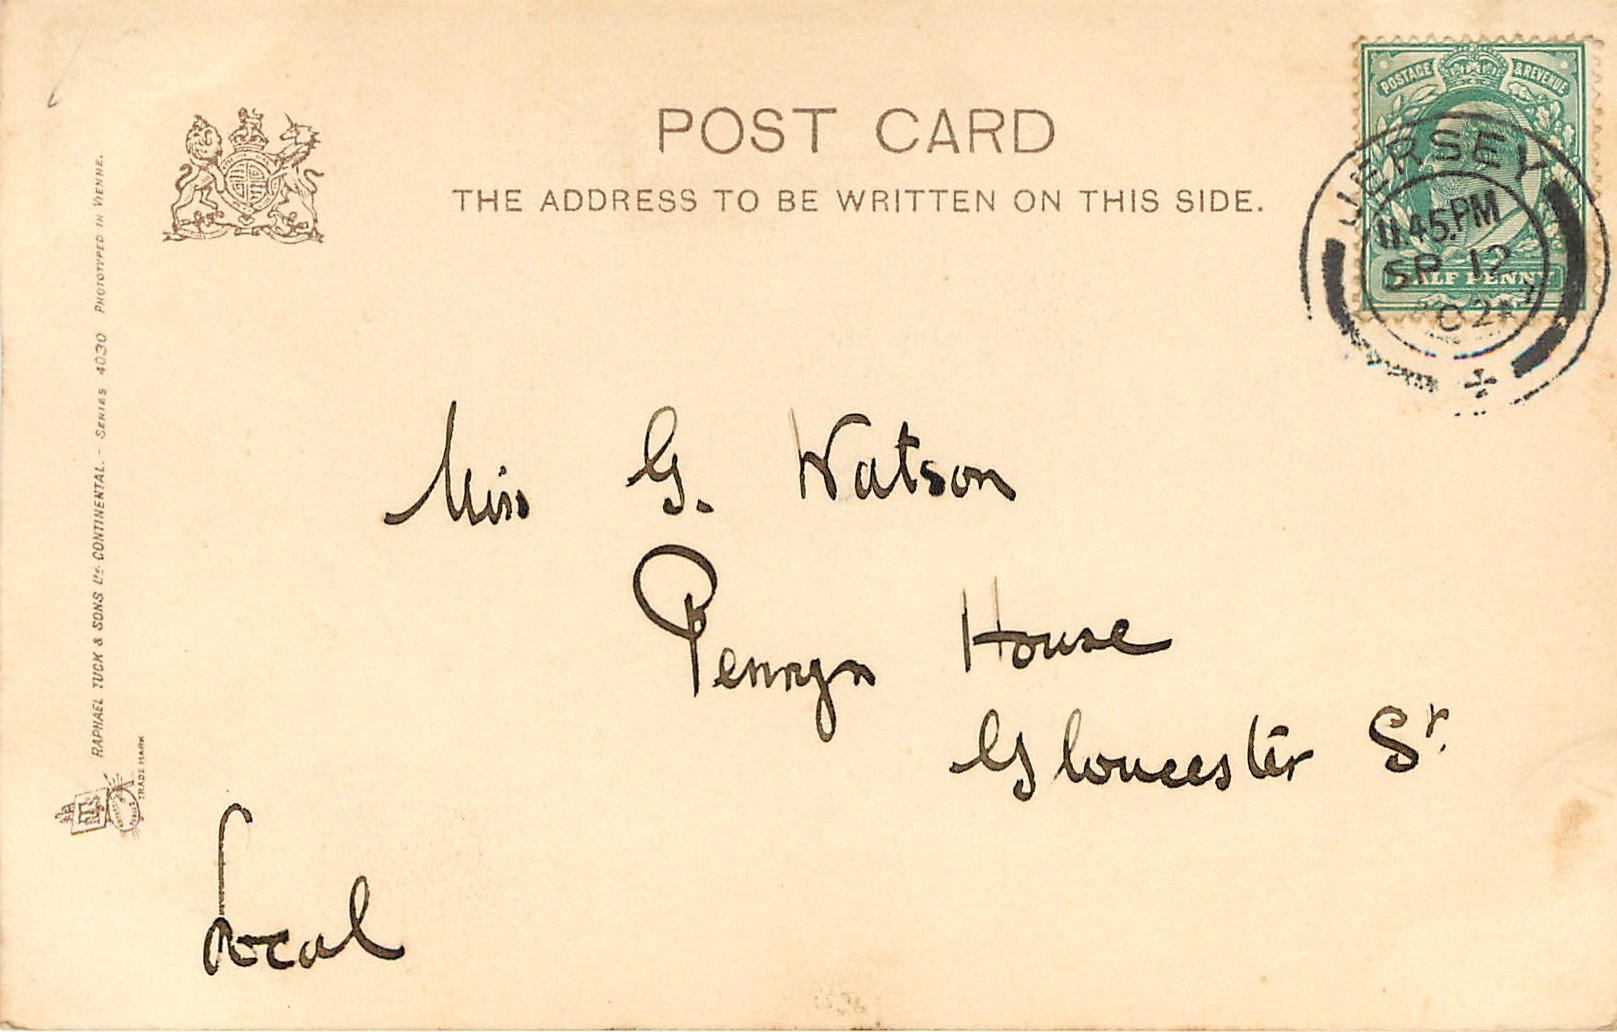 POST CARD
THE ADDRESS TO BE WRITTEN ON THIS SIDE.
POSTAGE & REVENUE
JERSEY
11.45.PM
SP 12
02
HALF PENNY
Miss G. Watson
Penryn House
Gloucester St.
Local
RAPHAEL TUCK & SONS Ld. CONTINENTAL. – SERIES 4030 PHOTOTYPED IN VIENNE.
TRADE MARK